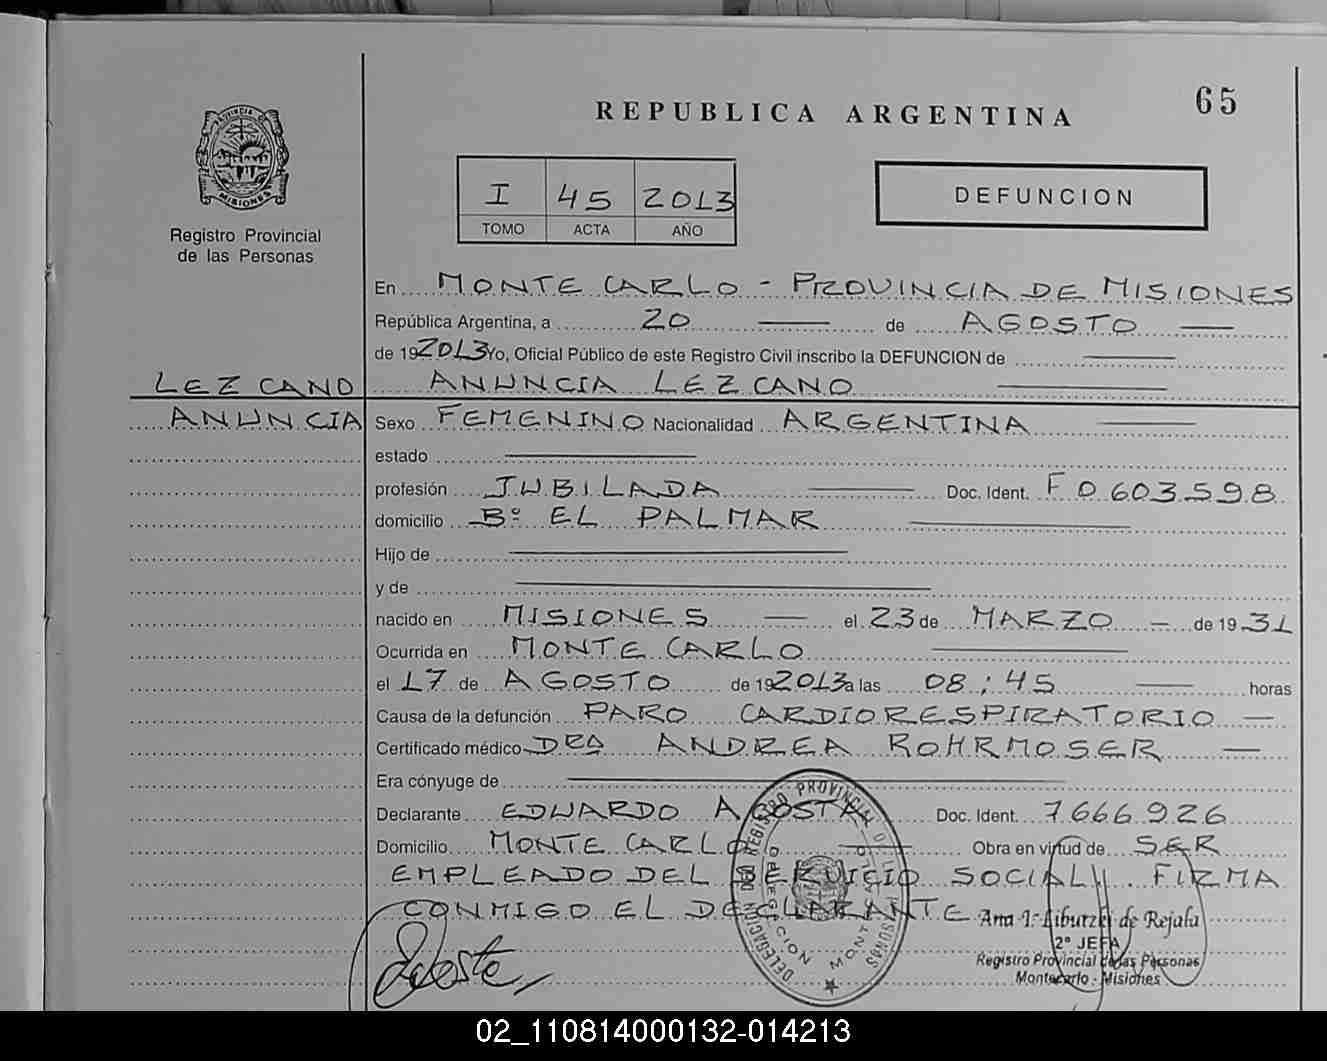 65
REPUBLICA ARGENTINA
PROVINCIA DE
MISIONES
Registro Provincial
de las Personas
I 45 2013
TOMO ACTA AÑO
DEFUNCION
En MONTE CARLO - PROVINCIA DE MISIONES
República Argentina, a 20 de AGOSTO
de 192013 Yo, Oficial Público de este Registro Civil inscribo la DEFUNCION de
LEZCANO ANUNCIA LEZCANO
ANUNCIA Sexo FEMENINO Nacionalidad ARGENTINA
estado
profesión JUBILADA Doc. Ident. F 0603598
domicilio Bº EL PALMAR
Hijo de
y de
nacido en MISIONES el 23 de MARZO de 19 31
Ocurrida en MONTE CARLO
el 17 de AGOSTO de 192013 a las 08:45 horas
Causa de la defunción PARO CARDIORESPIRATORIO
Certificado médico DRA ANDREA ROHRMOSER
Era cónyuge de
Declarante EDUARDO AGOSTA Doc. Ident. 7666926
Domicilio MONTE CARLO Obra en virtud de SER
EMPLEADO DEL SERVICIO SOCIAL. FIRMA
CONMIGO EL DECLARANTE
DELEGACION REGISTRO PROVINCIAL DE LAS PERSONAS
de Rejala
2º JEFA
Registro Provincial de las Personas
Montecarlo - Misiones
02_110814000132-014213